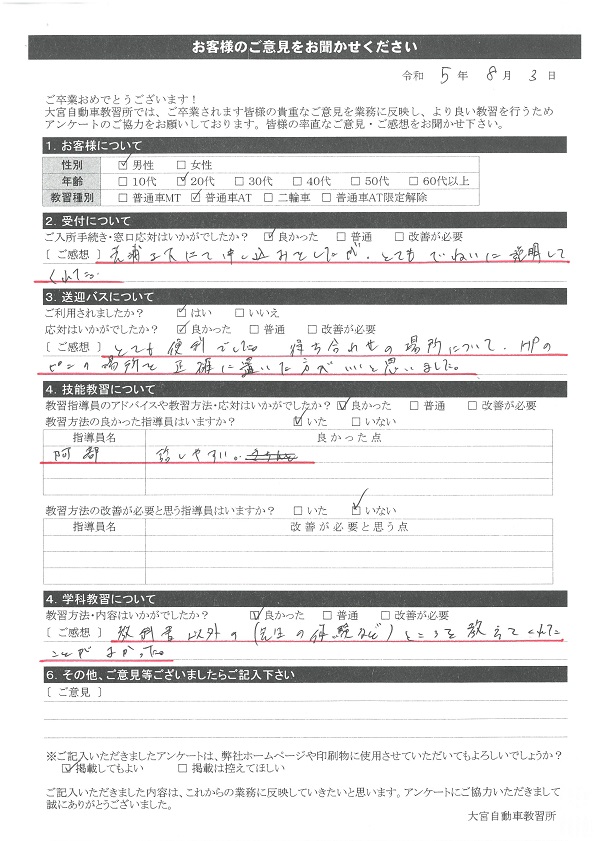 お客様のご意見をお聞かせください
令和 5 年 8 月 3 日
ご卒業おめでとうございます！
大宮自動車教習所では、ご卒業されます皆様の貴重なご意見を業務に反映し、より良い教習を行うため
アンケートのご協力をお願いしております。皆様の率直なご意見・ご感想をお聞かせ下さい。
1. お客様について
性別 ☑男性 □女性
年齢 □10代 ☑20代 □30代 □40代 □50代 □60代以上
教習種別 □普通車MT ☑普通車AT □二輪車 □普通車AT限定解除
2. 受付について
ご入所手続き・窓口応対はいかがでしたか？ ☑良かった □普通 □改善が必要
[ ご感想 ] にて申し込みをしたが、とてもていねいに説明して
くれた。
3. 送迎バスについて
ご利用されましたか？ ☑はい □いいえ
応対はいかがでしたか？ ☑良かった □普通 □改善が必要
[ ご感想 ] とても便利でした。待ち合わせの場所について、HPの
ピンの場所を正確に置いた方がいいと思いました。
4. 技能教習について
教習指導員のアドバイスや教習方法・応対はいかがでしたか？ ☑良かった □普通 □改善が必要
教習方法の良かった指導員はいますか？ ☑いた □いない
指導員名 良かった点
阿部 話しやすい。
教習方法の改善が必要と思う指導員はいますか？ □いた ☑いない
指導員名 改善が必要と思う点
4. 学科教習について
教習方法・内容はいかがでしたか？ ☑良かった □普通 □改善が必要
[ ご感想 ] 教科書以外の(先生の体験など)ところを教えてくれた
ことがよかった。
6. その他、ご意見等ございましたらご記入下さい
[ ご意見 ]
※ご記入いただきましたアンケートは、弊社ホームページや印刷物に使用させていただいてもよろしいでしょうか？
☑掲載してもよい □掲載は控えてほしい
ご記入いただきました内容は、これからの業務に反映していきたいと思います。アンケートにご協力いただきまして
誠にありがとうございました。
大宮自動車教習所